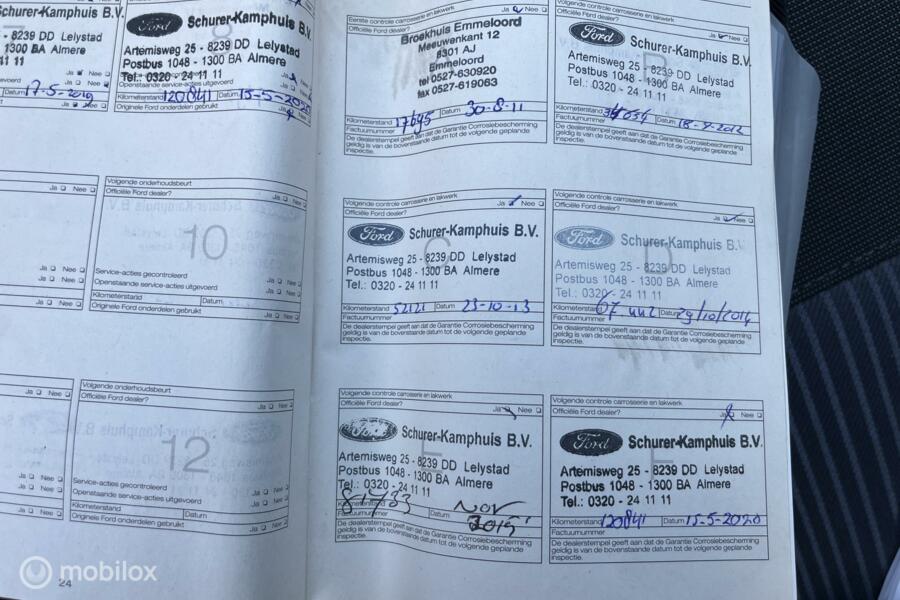 Schurer-Kamphuis B.V.
- 8239 DD Lelystad
1300 BA Almere
11 11
Ja Nee
17-5-2019
Ja Nee
8
Ford Schurer-Kamphuis B.V.
Artemisweg 25 - 8239 DD Lelystad
Postbus 1048 - 1300 BA Almere
Tel.: 0320 - 24 11 11
Openstaande service-acties uitgevoerd
Kilometerstand 120841 Datum 15-5-2020
Originele Ford onderdelen gebruikt
Ja Nee
Ja Nee
Ja Nee
Volgende onderhoudsbeurt
Officiële Ford dealer?
Ja Nee
10
Service-acties gecontroleerd
Ja Nee
Openstaande service-acties uitgevoerd
Ja Nee
Kilometerstand Datum
Originele Ford onderdelen gebruikt
Ja Nee
Ja Nee
Volgende onderhoudsbeurt
Officiële Ford dealer?
Ja Nee
12
Service-acties gecontroleerd
Ja Nee
Openstaande service-acties uitgevoerd
Ja Nee
Kilometerstand Datum
Originele Ford onderdelen gebruikt
Ja Nee
24
Eerste controle carrosserie en lakwerk
Officiële Ford dealer?
Ja Nee
Broekhuis Emmeloord
Meeuwenkant 12
8301 AJ
Emmeloord
tel 0527-630920
fax 0527-619063
Kilometerstand 17695 Datum 30-8-11
Factuurnummer
De dealerstempel geeft aan dat de Garantie Corrosiebescherming
geldig is van de bovenstaande datum tot de volgende geplande
inspectie.
Officiële Ford dealer?
Ja Nee
Ford Schurer-Kamphuis B.V.
Artemisweg 25 - 8239 DD Lelystad
Postbus 1048 - 1300 BA Almere
Tel.: 0320 - 24 11 11
Kilometerstand Datum
Factuurnummer
De dealerstempel geeft aan dat de Garantie Corrosiebescherming
geldig is van de bovenstaande datum tot de volgende geplande
inspectie.
Volgende controle carrosserie en lakwerk
Officiële Ford dealer?
Ja Nee
C
Ford Schurer-Kamphuis B.V.
Artemisweg 25 - 8239 DD Lelystad
Postbus 1048 - 1300 BA Almere
Tel.: 0320 - 24 11 11
Kilometerstand 52121 Datum 23-10-13
Factuurnummer
De dealerstempel geeft aan dat de Garantie Corrosiebescherming
geldig is van de bovenstaande datum tot de volgende geplande
inspectie.
Volgende controle carrosserie en lakwerk
Officiële Ford dealer?
Ja Nee
D
Ford Schurer-Kamphuis B.V.
Artemisweg 25 - 8239 DD Lelystad
Postbus 1048 - 1300 BA Almere
Tel.: 0320 - 24 11 11
Kilometerstand Datum 29/10/2014
Factuurnummer
De dealerstempel geeft aan dat de Garantie Corrosiebescherming
geldig is van de bovenstaande datum tot de volgende geplande
inspectie.
Volgende controle carrosserie en lakwerk
Officiële Ford dealer?
Ja Nee
E
Schurer-Kamphuis B.V.
Artemisweg 25 - 8239 DD Lelystad
Postbus 1048 - 1300 BA Almere
Tel.: 0320 - 24 11 11
Kilometerstand Datum Nov
Factuurnummer
De dealerstempel geeft aan dat de Garantie Corrosiebescherming
geldig is van de bovenstaande datum tot de volgende geplande
inspectie.
Volgende controle carrosserie en lakwerk
Officiële Ford dealer?
Ja Nee
F
Ford Schurer-Kamphuis B.V.
Artemisweg 25 - 8239 DD Lelystad
Postbus 1048 - 1300 BA Almere
Tel.: 0320 - 24 11 11
Kilometerstand 120841 Datum 15-5-2020
Factuurnummer
De dealerstempel geeft aan dat de Garantie Corrosiebescherming
geldig is van de bovenstaande datum tot de volgende geplande
inspectie.
mobilox